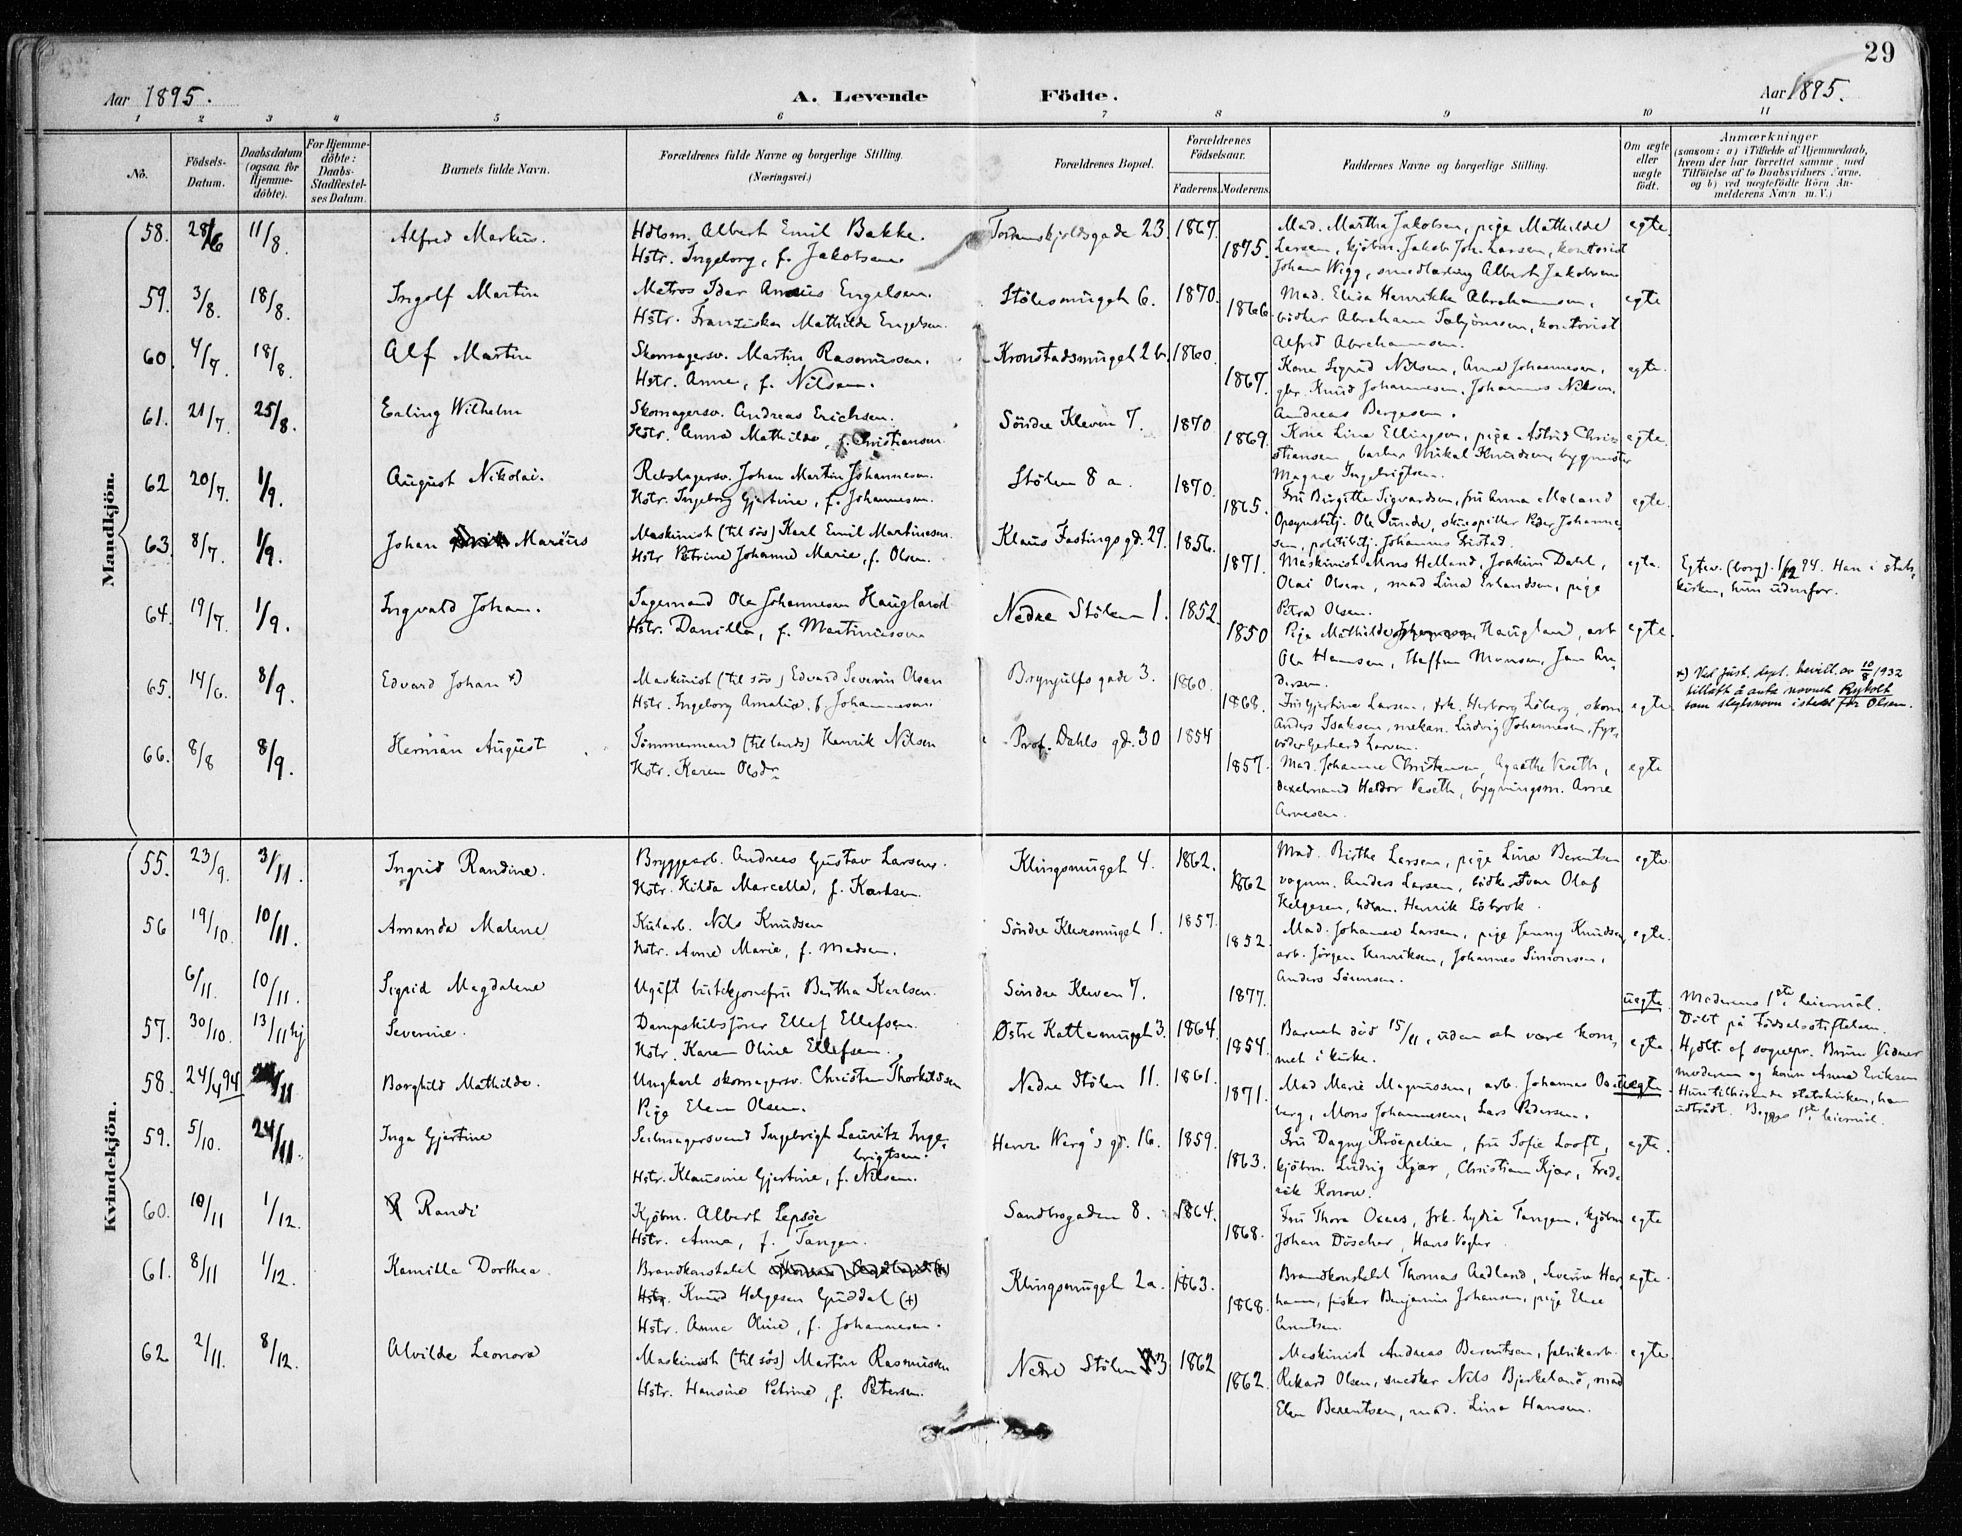 29
Aar 1895.
A. Levende
Fødte.
Aar 1895.
1 2 3 4 5 6 7 8 9 10 11
No.
Födsels-Datum.
Daabsdatum (ogsaa for Hjemme-döbte).
For Hjemme-döbte: Daabs-Stadfæstel-ses Datum.
Barnets fulde Navn.
Forældrenes fulde Navne og borgerlige Stilling. (Næringsvei.)
Forældrenes Bopæl.
Forældrenes Födselsaar.
Faderens. Moderens.
Faddernes Navne og borgerlige Stilling.
Om ægte eller uægte födt.
Anmærkninger
(saasom: a) i Tilfælde af Hjemmedaab, hvem der har forrettet samme, med Tilföielse af to Daabsvidners Navne, og b) ved uægtefödte Börn An-melderens Navn m. V.)
Mandkjön.
58. 28/6 11/8. Alfred Markus. Hdlsm. Albert Emil Bakke. Tordenskjoldsgade 23. 1867. Mad. Martha Jakobsen, pige Mathilde egte.
Hstr. Ingeborg, f. Jakobsen. 1875. Larsen, kjöbm. Jakob Joh. Larsen, kontorist
Johan Wigg, smedlærling Albert Jakobsen
59. 3/8. 18/8. Ingolf Martin Matros Engelsen. Stölesmuget 6. 1870. Mad. Elisa Henrikke Abrahamsen, egte
Hstr. Franziska Mathilde Engelsen. 1866. bödker Abraham kontorist
Alfred Abrahamsen.
60. 4/7. 18/8. Alf Martin Skomagersv. Martin Rasmussen. Kronstadsmuget 2b. 1860. Kone Sigrid Nilsen, Anna Johannesen, egte.
Hstr. Anna, f. Nilsen. 1867. gbr. Knud Johannesen, Johannes Nilsen.
Andreas Bergesen.
61. 21/7. 25/8. Erling Wilhelm Skomagersv. Andreas Erichsen. Söndre Kleven 7. 1870 Kone Lina Ellingsen, pige Astrid Chris- egte.
Hstr. Anna Mathilde, f. Christiansen 1869. stiansen, barber Mikal Knudsen, bygmester
Magne Ingebrigtsen.
62 20/7. 1/9. August Nikolai. Rebslagersv. Johan Martin Johannesen. Stölen 8 a. 1870. Fru Birgitte Sigvardsen, fru Anna Meland egte.
Hstr. Ingeborg Gjertine, f. Johannesen. 1865. Opsynsbtj. Ole Sunde, skuespiller Peder Johanne-
sen, politibtj. Johannes
63. 8/7. 1/9. Johan Marius Maskinist (til sös) Karl Emil Martinesen. Klaus Fastings gd. 29. 1856. Maskinist Mons Helland, Joakim Dahl, egte.
Hstr Petrine Johanne Marie, f. Olsen. 1871. Olai Olsen, mad Lina Erlandsen, pige
Petra Olsen.
Egtev. (borg). 1/12 94. Han i stats-
kirken, hun udenfor.
64. 19/7. 1/9. Ingvald Johan. Sagemand Ole Johannesen Haugland Nedre Stölen 1. 1852. Pige Mathilde Haugland, arb egte.
Hstr. Danilla, f. Martinusson 1850 Ole Hansen, Steffen Monsen, Jan An-
dersen.
65. 14/6. 8/9. Edvard Johan x) Maskinist (til sös) Edvard Severin Olsen Brynjulfs gade 3. 1860. Fru Gjertine Larsen, frk. Herborg Löberg, skom egte.
Hstr. Ingeborg Amalie, f. Johannesen. 1868. Anders Isaksen, mekan. Ludvig Johannesen, fyr-
böder Gerhard Larsen.
x) Ved Just. dept. bevill. av 10/8 1932
tillatt å anta navnet Rykolt
som slegtsnavn istedet for Olsen.
66. 8/8 8/9. Herman August Tömmermand (til lands) Henrik Nilsen Prof. Dahls gd. 30 1854 Mad. Johanne Christensen, Agathe Veseth, egte
Hstr. Karen Olsdr 1857. Haldor Veseth, bygningsm. Arne
Arnesen.
Kvindekjön.
55. 23/9. 3/11. Ingrid Randine. Bryggearb. Andreas Gustav Larsen. Klingsmuget 4. 1862. Mad. Birthe Larsen, pige Lina Berentsen egte.
Hstr. Hilda Marcella, f. Karlsen. 1862 vognm. Anders Larsen, bödker Olaf
Helgesen, hdlsm. Henrik Löbrok.
56 19/10. 10/11. Amanda Malene Kularb. Nils Knudsen Söndre Klevesmuget 1. 1857. Mad. Johanne Larsen, pige Jenny Knudsen, egte.
Hstr. Anne Marie, f. Madsen. 1852. arb. Jörgen Henriksen, Johannes Simonsen,
Anders Sörensen.
6/11. 10/11. Sigrid Magdalene Ugift butikjomfru Bertha Karlsen. Söndre Kleven 7. 1877. uegte. Moderens 1ste leiermål.
Döbt på Födselsstiftelsen.
57. 30/10. 13/11 hj Severine. Dampskibsförer Ellef Ellefsen. Østre Kattesmuget 3. 1864. Barnet död 15/11, uden at være kom- egte.
Hstr. Karen Oline Ellefsen. 1854. met i kirke.
Hjdbt. af sognepr. Bruun
moderen og konen Anne Eriksen
58. 24/4 94 24/11 Borghild Mathilde. Ungkarl skomagersv. Christen Thorkildsen Nedre Stölen 11. 1861. Mad Marie Magnussen, arb. Johannes uegte.
Pige Elen Olsen. 1871. berg, Mons Johannesen, Lars Pedersen.
Hun tilhörende statskirken, han
udtrådt. Begges 1ste leiermål.
59. 5/10. 24/11. Inga Gjertine Seilmagersvend Ingebrigt Lauritz Inge-
brigtsen. gd. 16. 1859. Fru Dagny Kröepelien, fru Sofie Looft, egte.
Hstr. Klausine Gjertine, f. Nilsen. 1863. kjöbm. Ludvig Kjær, Christian Kjær, Fred-
rik Konow.
60. 10/11 1/12. Randi Kjöbm. Albert Lepsöe Sandbrogaden 8. 1864. Fru Thora frk. Lydia Tangen, kjöbm egte
Hstr. Anna, f. Tangen. 1868. Johan Döscher, Hans Vogler.
61. 8/11 1/12. Kamilla Dorthea. Brandkonstabel Klingsmuget 2a. 1863. Brandkonstabel Thomas Aadland, Severin Har- egte.
Hstr. Knud Helgesen Guddal (+) 1868. hann, fisker Benjamin Johansen, pige Elne
Hstr. Anna Oline, f. Johannesen. Arentsen.
62 2/11. 8/12. Alvilde Leonora Maskinist (til sös) Martin Rasmussen Nedre Stölen 3 1862 Maskinist Andreas Berentsen, fabrikarb. egte.
Hstr. Hansine Petrine, f. Petersen. 1862. Rikard Olsen, snedker Nils Bjerkeland, mad
Elen Berentsen, mad. Lina Hansen.